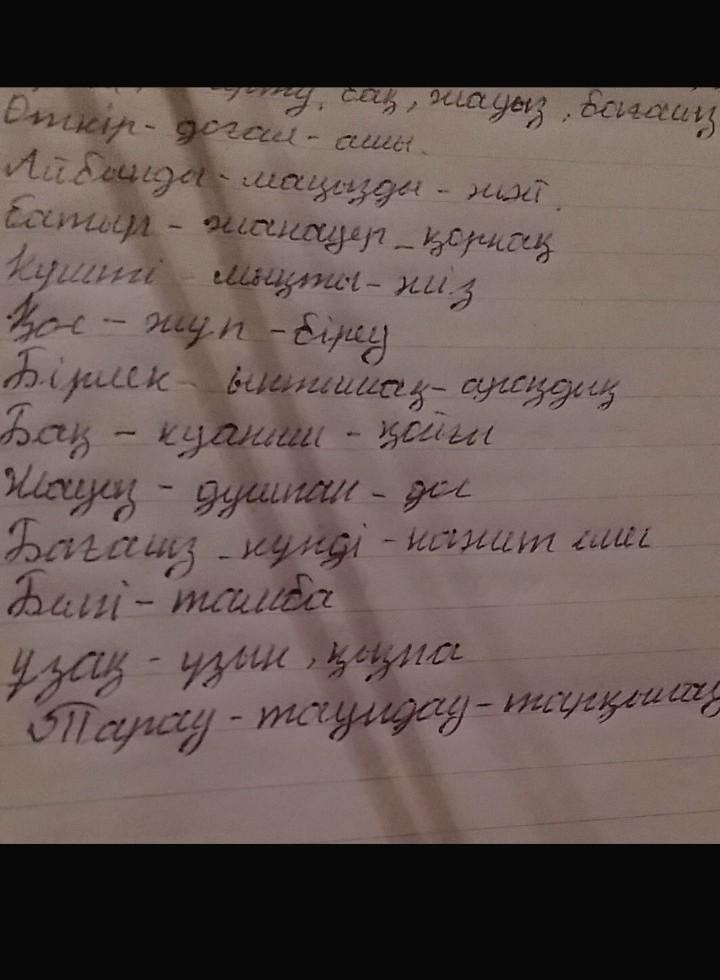 бақ, жауыз, бағалыз
Өткір - доғал - ашы.
Айбынды - маңызды - жәй.
батыр - жанауер - қорқақ
Күшті - мықты - жіз
Қос - жұп - біреу
Бірлек - ынтымақ - араздық
Бақ - куаныш - қайғы
Жауыз - душпан - дос
Бағалыз - күнді - кажит емес
Белгі - таңба
ұзақ - ұзын, қысқа
Тарау - таулдау - тарқылау